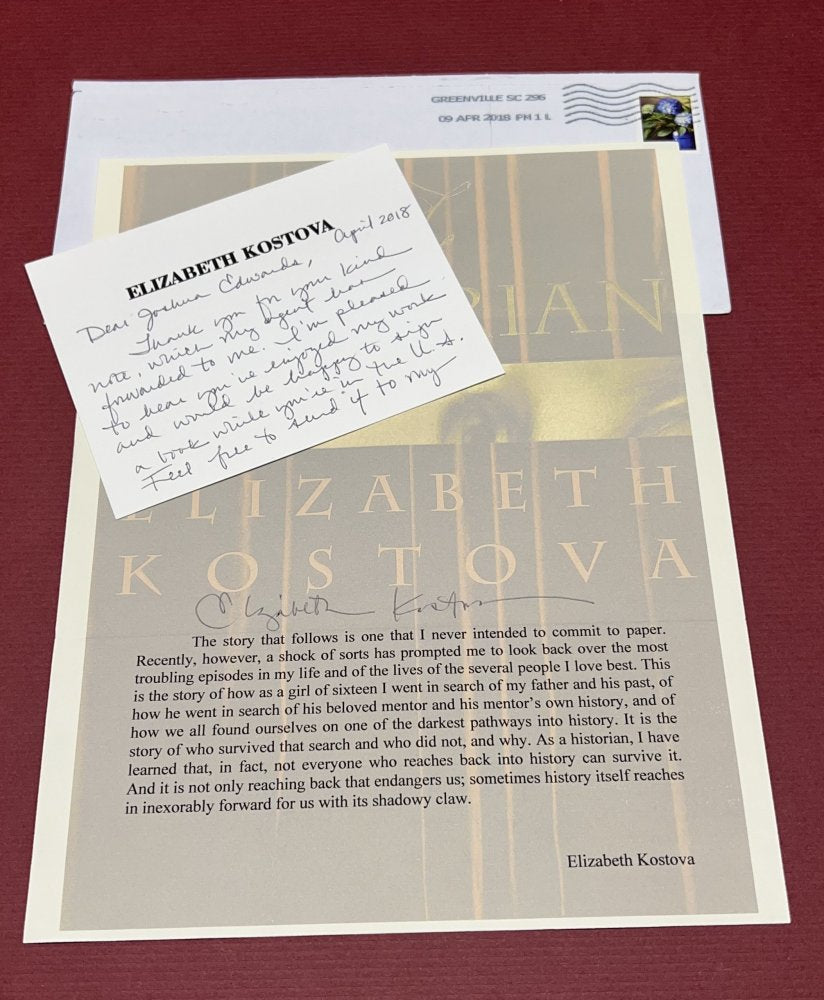 GREENVILLE SC 296
09 APR 2018 PM 1 L
ELIZABETH KOSTOVA
April 2018
Dear Joshua Edwards,
Thank you for your kind
note, which my agent has
forwarded to me. I'm pleased
to hear you've enjoyed my work
and would be happy to sign
a book while you're in the U.S.
Feel free to send it to my
RIAN
ELIZABETH
KOSTOVA
Elizabeth Kostova
The story that follows is one that I never intended to commit to paper.
Recently, however, a shock of sorts has prompted me to look back over the most
troubling episodes in my life and of the lives of the several people I love best. This
is the story of how as a girl of sixteen I went in search of my father and his past, of
how he went in search of his beloved mentor and his mentor's own history, and of
how we all found ourselves on one of the darkest pathways into history. It is the
story of who survived that search and who did not, and why. As a historian, I have
learned that, in fact, not everyone who reaches back into history can survive it.
And it is not only reaching back that endangers us; sometimes history itself reaches
in inexorably forward for us with its shadowy claw.
Elizabeth Kostova